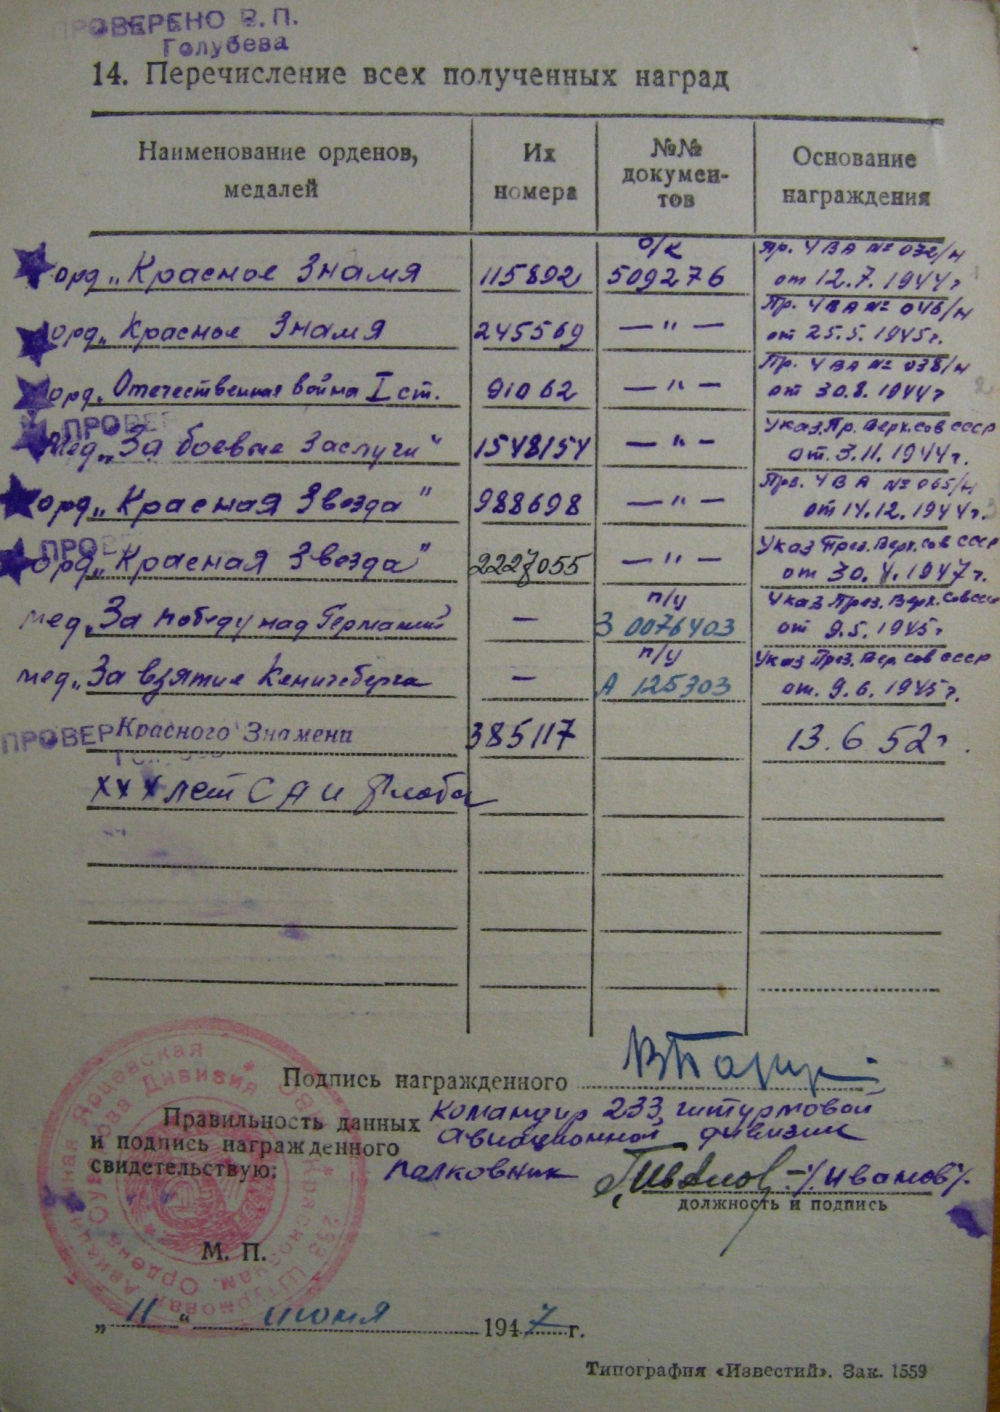 ПРОВЕРЕНО В.П.
Голубева
14. Перечисление всех полученных наград
Наименование орденов, медалей
Их номера
№№ документов
Основание награждения
орд „Красное Знамя 115892 о/к 509276 Пр. 4 ВА № 032/н от 12.7.1944г
орд „Красное Знамя 245569 — " — Пр. 4 ВА № 046/н от 25.5.1945г.
орд. „Отечественная война I ст. 91062 — " — Пр. 4 ВА № 038/н от 30.8.1944г
ПРОВЕР
мед „За боевые заслуги" 1548154 — " — Указ. Пр. Верх. Сов СССР от. 3.11.1944г.
орд „Красная Звезда" 988698 — " — Прз. 4 ВА № 065/н от 14.12.1944г.
ПРОВЕ
орд „Красная Звезда" 2227055 — " — Указ През. Верх. Сов СССР от 30.4.1947г.
мед „За победу над Германией — п/у З 0076403 Указ През. Верх. Сов ССР от 9.5.1945г
мед „За взятие Кенигсберга — п/у А 125303 Указ През. Вер сов СССР от. 9.6.1945г.
ПРОВЕР Красного Знамени 385117 13.6.52г.
XXX лет СА и флота
Подпись награжденного
Правильность данных и подпись награжденного свидетельствую:
командир 233 штурмовой
авиационной дивизии
полковник Иванов /Иванов/.
должность и подпись
М. П.
„ 11 “ июня 1947 г.
Типография «Известий». Зак. 1559